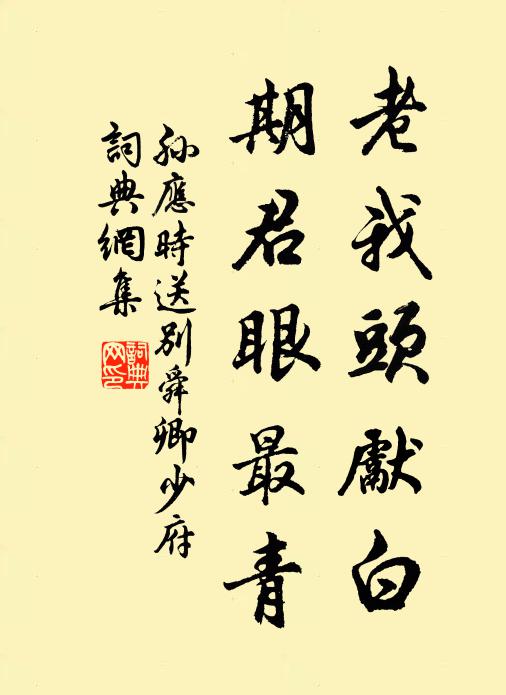 老我頭獻白
期君眼最青
孫應時送別舜卿少府
詞典網集
詞典網印